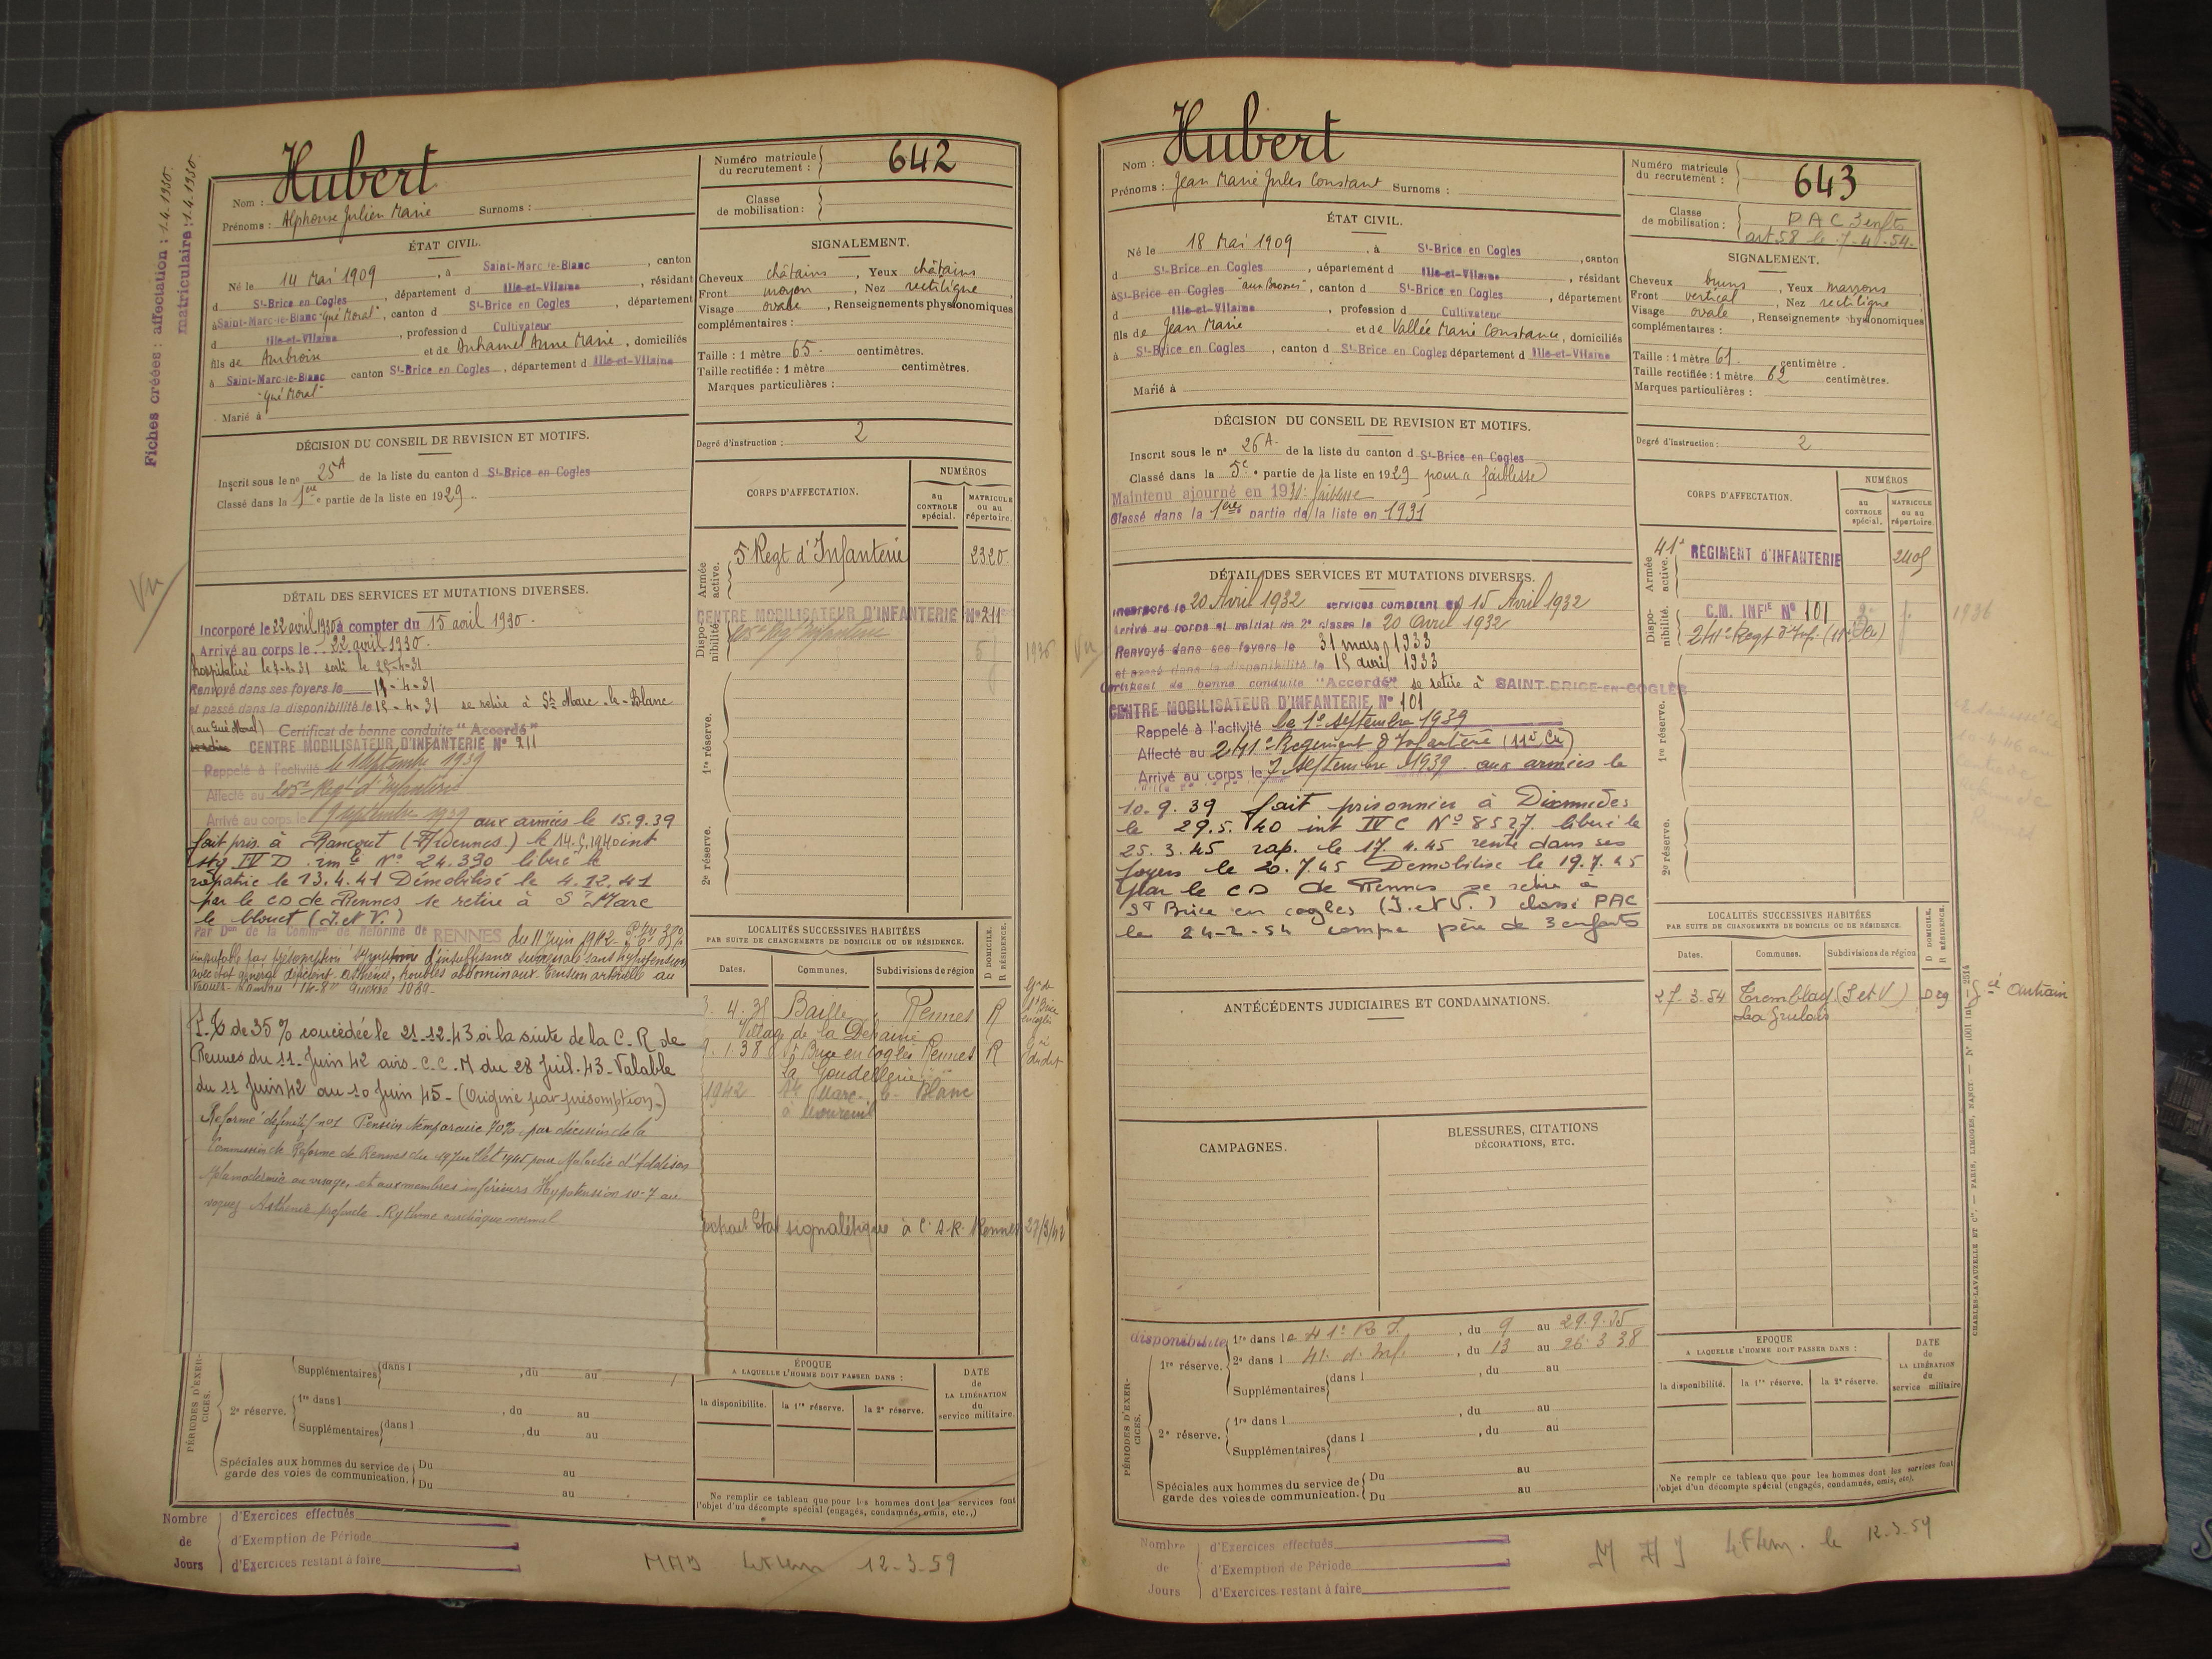 Fiches créées : affectation : 1.4.1930.
matriculaire : 1.4.1930.
Vu
Nom : Hubert
Prénoms : Alphonse Julien Marie Surnoms :
Numéro matricule du recrutement : 642
Classe de mobilisation :
ÉTAT CIVIL.
Né le 14 Mai 1909, à Saint-Marc-le-Blanc, canton
d St-Brice en Cogles, département d Ille-et-Vilaine, résidant
à Saint-Marc-le-Blanc "Gué Moral", canton d St-Brice en Cogles, département
d Ille-et-Vilaine, profession d Cultivateur
fils de Ambroise et de Duhamel Anne Marie, domiciliés
à Saint-Marc-le-Blanc canton St-Brice en Cogles, département d Ille-et-Vilaine
"Gué Moral"
Marié à
SIGNALEMENT.
Cheveux châtains, Yeux châtains
Front moyen, Nez rectiligne,
Visage ovale, Renseignements physionomiques
complémentaires :
Taille : 1 mètre 65. centimètres.
Taille rectifiée : 1 mètre centimètres.
Marques particulières :
Degré d'instruction : 2
DÉCISION DU CONSEIL DE REVISION ET MOTIFS.
Inscrit sous le no 25A de la liste du canton d St-Brice en Cogles
Classé dans la 1ère partie de la liste en 1929.
CORPS D'AFFECTATION.
NUMÉROS
au CONTROLE spécial.
MATRICULE ou au répertoire.
Armée active.
5 Regt d'Infanterie 2320.
Disponibilité.
CENTRE MOBILISATEUR D'INFANTERIE No 211
1re réserve.
2e réserve.
DÉTAIL DES SERVICES ET MUTATIONS DIVERSES.
Incorporé le 22 avril 1930 à compter du 15 avril 1930.
Arrivé au corps le 22 avril 1930.
Renvoyé dans ses foyers le
et passé dans la disponibilité le 15-4-31 se retire à St Marc-le-Blanc
(au Gué Moral) Certificat de bonne conduite "Accordé"
CENTRE MOBILISATEUR D'INFANTERIE No 211
Rappelé à l'activité le 1 Septembre 1939
Affecté au 205e Regt d'Infanterie
Arrivé au corps le 9 septembre 1939 aux armées le 15.9.39
fait pris. à Rancourt (Ardennes) le 14.5.1940 int
Stg IV D. imle No 24.390 libéré le
rapatrié le 13.4.41 Démobilisé le 4.12.41
par le CD de Rennes se retire à St Marc
le blouet (I. et V.)
Par Don de la Common de Réforme de RENNES du 11 Juin 1942
imputable par présomption Syndrome d'insuffisance surrénale sans hypotension
avec état général déficient, asthénie, troubles abdominaux. Tension artérielle au
P. de 35 % concédée le 21-12-43 à la suite de la C.R de
Rennes du 11 Juin 42 avis C.C.M du 28 Juil. 43 - Valable
du 11 Juin 42 au 10 Juin 45 - (Origine par présomption.)
Réformé définitif no1 Pension temporaire 70% par décision de la
Commission de Réforme de Rennes du 19 Juillet 1945 pour Maladie d'Addison
Mélanodermie au visage, et aux membres inférieurs Hypotension 10-7 au
vaquez Asthénie profonde. Rythme cardiaque normal
LOCALITÉS SUCCESSIVES HABITÉES
PAR SUITE DE CHANGEMENTS DE DOMICILE OU DE RÉSIDENCE.
Dates. Communes. Subdivisions de région
D DOMICILE. R RÉSIDENCE.
Baillé Rennes R
Village de la
1.38 St Brice en Cogles Rennes R
1942 St Marc-le-Blanc
extrait Etat signalétique à C.D.R. Rennes 27/3/42
PÉRIODES D'EXERCICES.
Supplémentaires dans l , du au
2e réserve. 1re dans l , du au
Supplémentaires dans l , du au
Spéciales aux hommes du service de garde des voies de communication. Du au
Du au
ÉPOQUE
A LAQUELLE L'HOMME DOIT PASSER DANS :
la disponibilité. la 1re réserve. la 2e réserve.
DATE de LA LIBÉRATION du service militaire.
Ne remplir ce tableau que pour les hommes dont les services font
l'objet d'un décompte spécial (engagés, condamnés, omis, etc.,)
Nombre de Jours
d'Exercices effectués
d'Exemption de Période
d'Exercices restant à faire
12-3-59
Nom : Hubert
Prénoms : Jean Marie Jules Constant Surnoms :
Numéro matricule du recrutement : 643
Classe de mobilisation : P A C 3 enfts
art 58 le 7-4-54.
ÉTAT CIVIL.
Né le 18 Mai 1909, à St-Brice en Cogles, canton
d St-Brice en Cogles, département d Ille-et-Vilaine, résidant
à St-Brice en Cogles "aux Brosses", canton d St-Brice en Cogles, département
d Ille-et-Vilaine, profession d Cultivateur
fils de Jean Marie et de Vallée Marie Constance, domiciliés
à St-Brice en Cogles, canton d St-Brice en Cogles département d Ille-et-Vilaine
Marié à
SIGNALEMENT.
Cheveux bruns, Yeux marrons
Front vertical, Nez rectiligne
Visage ovale, Renseignements physionomiques
complémentaires :
Taille : 1 mètre 61. centimètre.
Taille rectifiée : 1 mètre 62 centimètres.
Marques particulières :
Degré d'instruction : 2
DÉCISION DU CONSEIL DE REVISION ET MOTIFS.
Inscrit sous le no 26A de la liste du canton d St-Brice en Cogles
Classé dans la 5e partie de la liste en 1929 pour "faiblesse"
Maintenu ajourné en 1930: faiblesse
Classé dans la 1ère partie de la liste en 1931
CORPS D'AFFECTATION.
NUMÉROS
au CONTROLE spécial.
MATRICULE ou au répertoire.
Armée active.
41e REGIMENT d'INFANTERIE 2405
Disponibilité.
C.M. INFIE No 101 1936
241e Regt d'Inf. (11e Cie)
1re réserve.
2e réserve.
DÉTAIL DES SERVICES ET MUTATIONS DIVERSES.
Incorporé le 20 Avril 1932 services comptent du 15 Avril 1932
Arrivé au corps et soldat de 2e classe le 20 avril 1932
Renvoyé dans ses foyers le 31 mars 1933
et passé dans la disponibilité le 15 avril 1933
Certificat de bonne conduite "Accordé" se retire à SAINT-BRICE-EN-COGLES
CENTRE MOBILISATEUR D'INFANTERIE, No 101
Rappelé à l'activité le 1er septembre 1939
Affecté au 241e Regiment d'Infanterie (11e Cie)
Arrivé au corps le 7 septembre 1939 aux armées le
10.9.39 fait prisonnier à Dixmudes
le 29.5.40 int IV C No 8527 libéré le
25.3.45 rap. le 17.4.45 rentré dans ses
foyers le 20.7.45 Démobilisé le 19.7.45
par le CD de Rennes se retire à
St Brice en cogles (I. et V.) classé PAC
le 24-2-54 comme père de 3 enfants
ANTÉCÉDENTS JUDICIAIRES ET CONDAMNATIONS.
LOCALITÉS SUCCESSIVES HABITÉES
PAR SUITE DE CHANGEMENTS DE DOMICILE OU DE RÉSIDENCE.
Dates. Communes. Subdivisions de région
D DOMICILE. R RÉSIDENCE.
27-3-54 Tremblay (I et V) Antrain
CAMPAGNES.
BLESSURES, CITATIONS
DÉCORATIONS, ETC.
PÉRIODES D'EXERCICES.
disponibilité 1re dans le 41e R.I., du 9 au 29.9.35
1re réserve. 2e dans l 41e d'Inf., du 13 au 26.3.38
Supplémentaires dans l , du au
2e réserve. 1re dans l , du au
Supplémentaires dans l , du au
Spéciales aux hommes du service de garde des voies de communication. Du au
Du au
EPOQUE
A LAQUELLE L'HOMME DOIT PASSER DANS :
la disponibilité. la 1re réserve. la 2e réserve.
DATE de LA LIBÉRATION du service militaire
Ne remplir ce tableau que pour les hommes dont les services font
l'objet d'un décompte spécial (engagés, condamnés, omis, etc).
CHARLES-LAVAUZELLE ET Cie. — PARIS, LIMOGES, NANCY.
Nombre de Jours
d'Exercices effectués
d'Exemption de Période
d'Exercices restant à faire
le 12-3-59